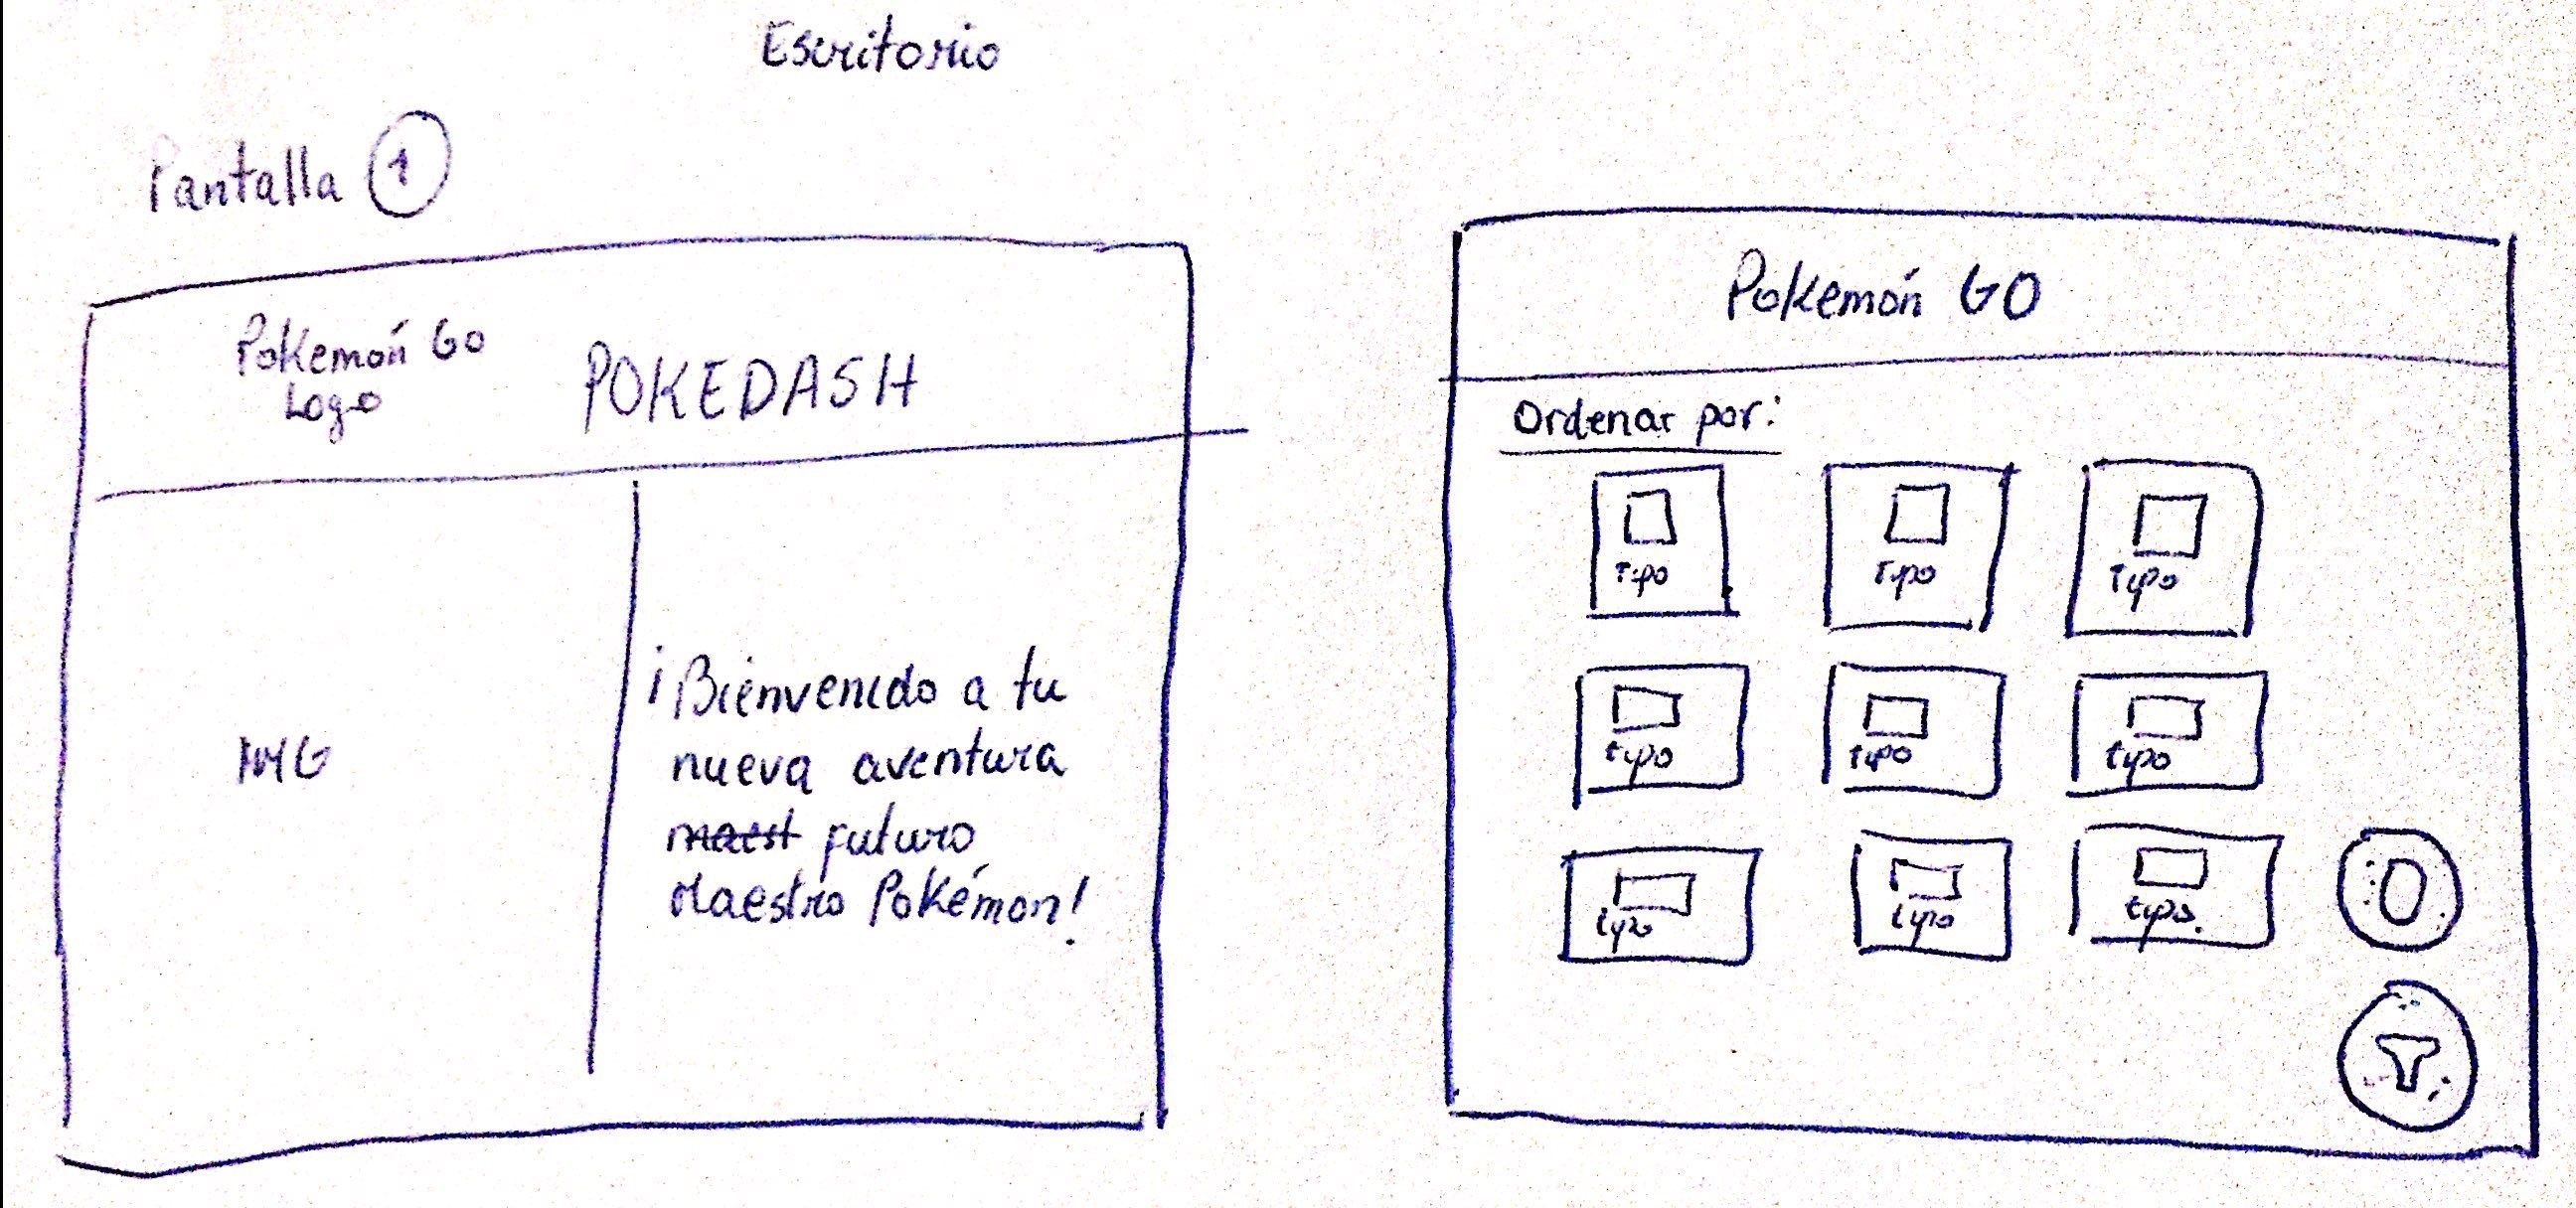 Escritorio
Pantalla 1
Pokemón Go
Logo
POKEDASH
IMG
¡Bienvenido a tu
nueva aventura
maest futuro
Maestro Pokémon!
Pokemón GO
Ordenar por:
Tipo Tipo Tipo
tipo tipo tipo
tipo tipo tipo.